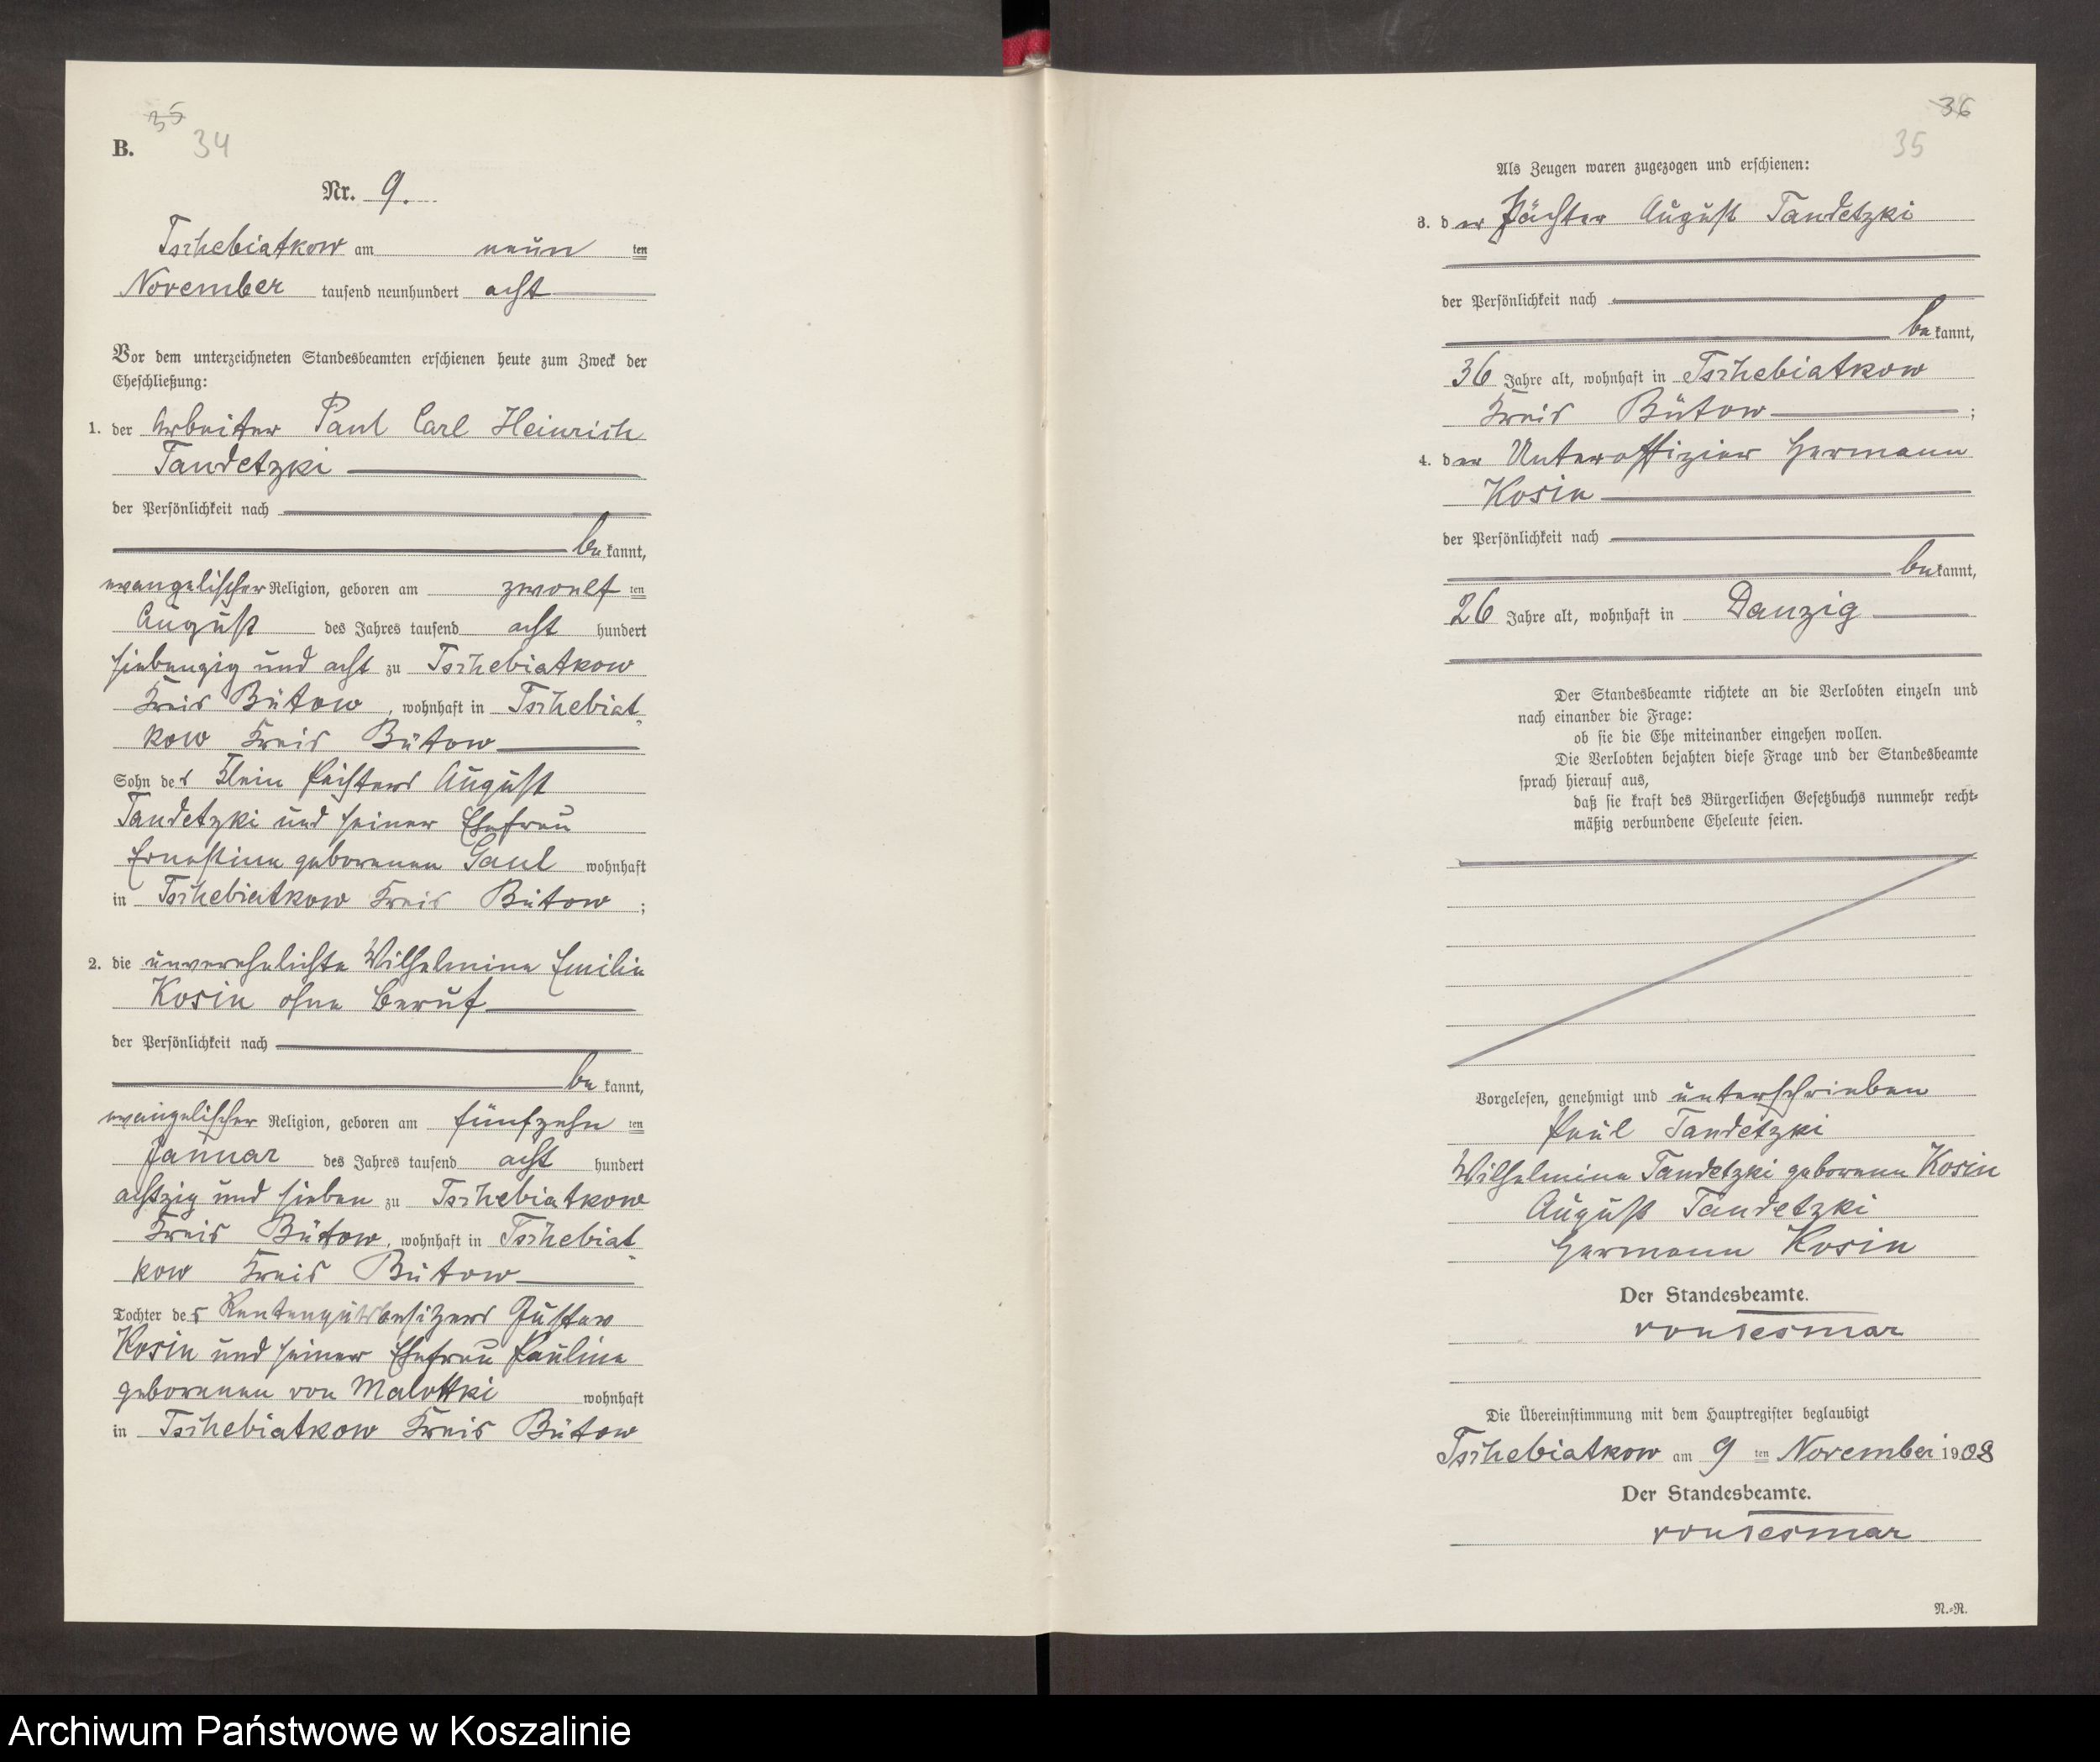 35
34
B.
Nr. 9.
Tschebiatkow am neun ten
November tausend neunhundert acht
Vor dem unterzeichneten Standesbeamten erschienen heute zum Zweck der
Eheschließung:
1. der Arbeiter Paul Carl Heinrich
Tandetzki
der Persönlichkeit nach
be kannt,
evangelischer Religion, geboren am zwoelf ten
August des Jahres tausend acht hundert
siebenzig und acht zu Tschebiatkow
Kreis Bütow, wohnhaft in Tschebiat-
kow Kreis Bütow
Sohn des Klein Pächters August
Tandetzki und seiner Ehefrau
Ernestine geborenen Gaul wohnhaft
in Tschebiatkow Kreis Bütow;
2. die unverehelichte Wilhelmine Emilie
Kosin ohne Beruf
der Persönlichkeit nach
be kannt,
evangelischer Religion, geboren am fünfzehn ten
Januar des Jahres tausend acht hundert
achtzig und sieben zu Tschebiatkow
Kreis Bütow, wohnhaft in Tschebiat-
kow Kreis Bütow
Tochter des Rentengutsbesitzers Gustav
Kosin und seiner Ehefrau Pauline
geborenen von Malottki wohnhaft
in Tschebiatkow Kreis Bütow
36
35
Als Zeugen waren zugezogen und erschienen:
3. der Pächter August Tandetzki
der Persönlichkeit nach
be kannt,
36 Jahre alt, wohnhaft in Tschebiatkow
Kreis Bütow;
4. der Unteroffizier Hermann
Kosin
der Persönlichkeit nach
be kannt,
26 Jahre alt, wohnhaft in Danzig
Der Standesbeamte richtete an die Verlobten einzeln und
nach einander die Frage:
ob sie die Ehe miteinander eingehen wollen.
Die Verlobten bejahten diese Frage und der Standesbeamte
sprach hierauf aus,
daß sie kraft des Bürgerlichen Gesetzbuchs nunmehr recht-
mäßig verbundene Eheleute seien.
Vorgelesen, genehmigt und unterschrieben
Paul Tandetzki
Wilhelmine Tandetzki geborene Kosin
August Tandetzki
Hermann Kosin
Der Standesbeamte.
von Tesmar
Die Übereinstimmung mit dem Hauptregister beglaubigt
Tschebiatkow am 9 ten November 1908
Der Standesbeamte.
von Tesmar
N.-R.
Archiwum Państwowe w Koszalinie